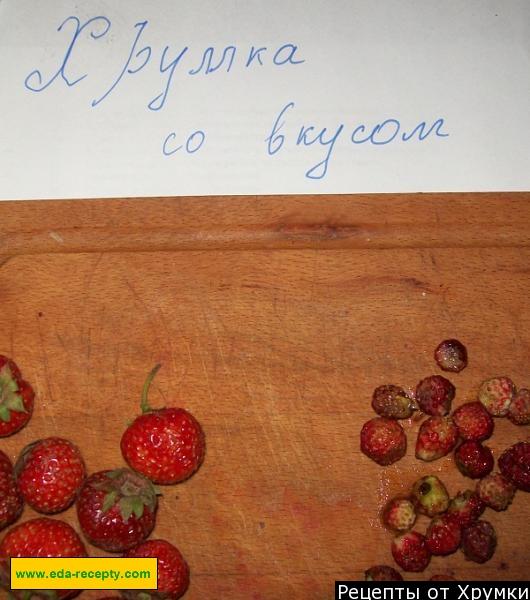 Хрумка
со вкусом
www.eda-recepty.com
Рецепты от Хрумки